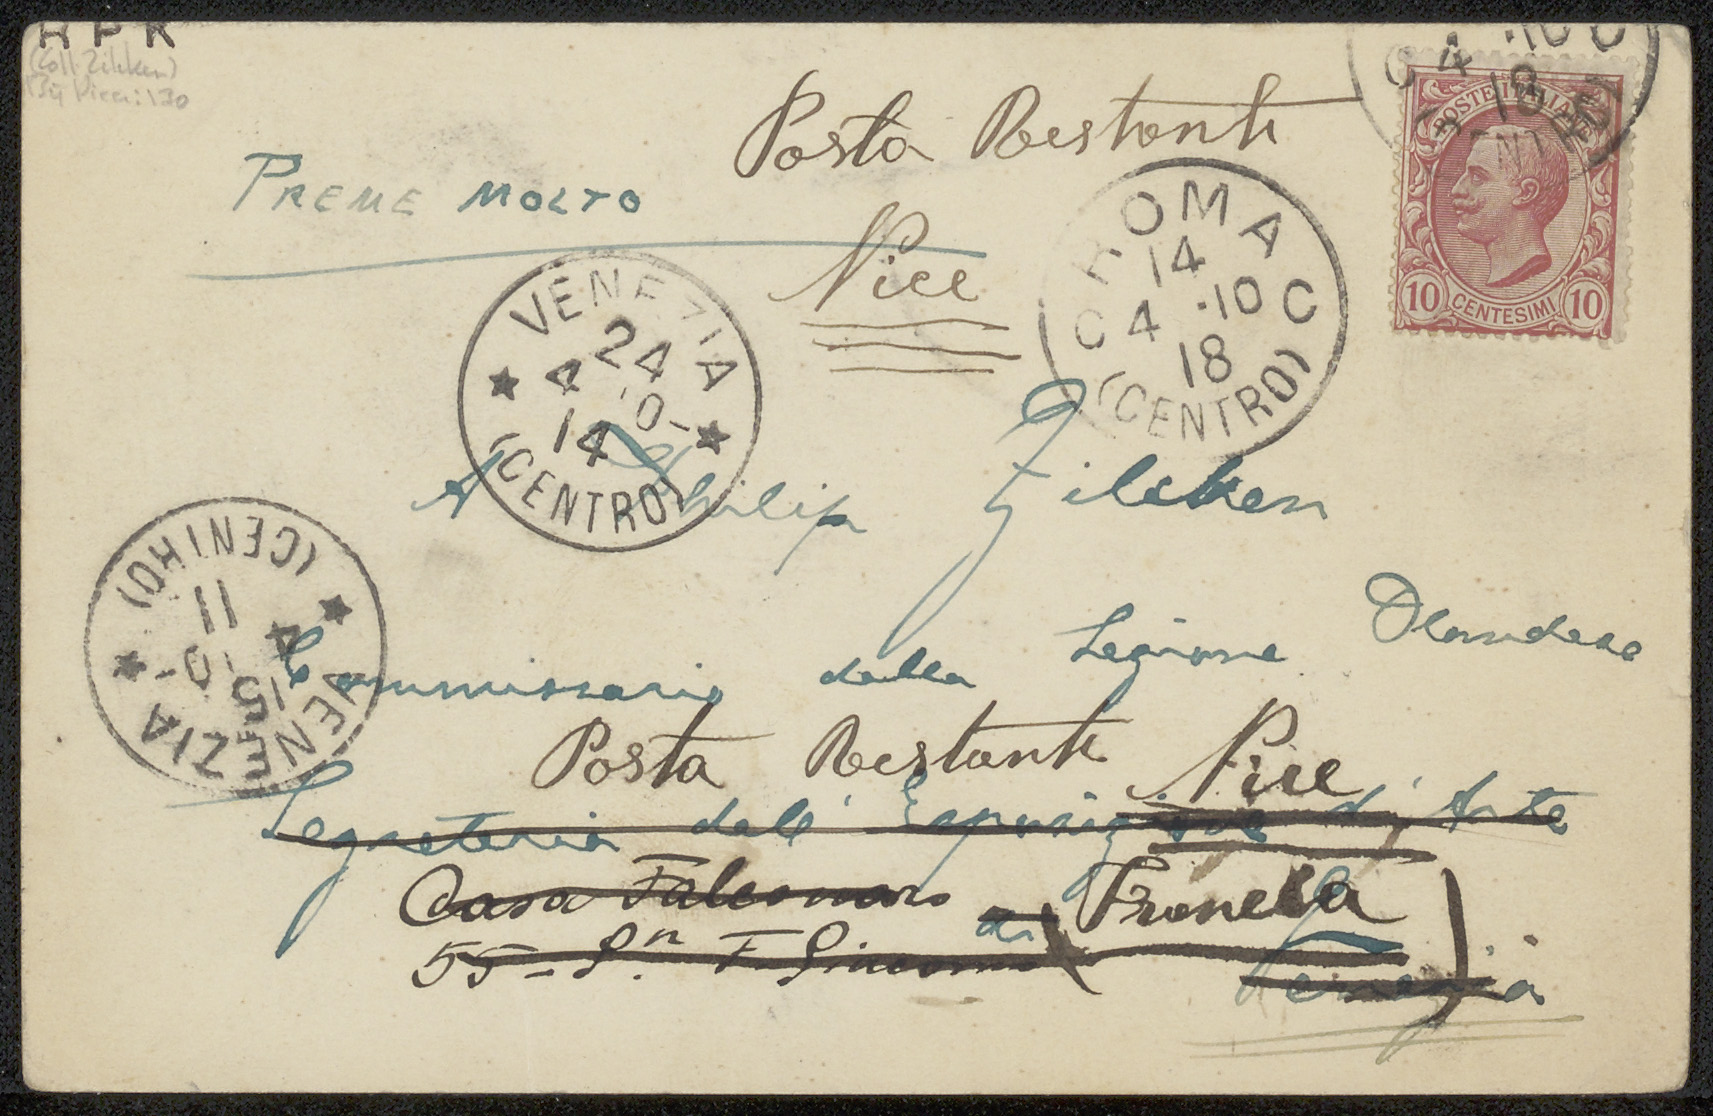 RPK
(Coll Zilcken)
POSTE ITALIANE
10 CENTESIMI 10
Posta Restante
PREME MOLTO
Nice
ROMA
14
C 4 ·10 C
18
(CENTRO)
VENEZIA
24
4 10-
14
(CENTRO)
A Philip Zilcken
VENEZIA
11
4 10-
15
(CENTRO)
Commissario della Sezione Olandese
Posta Restante Nice
Segreteria dell' Esposizione d'Arte
Casa Falconaro di (Francia)
55 - Sn F. Giacomo Venezia